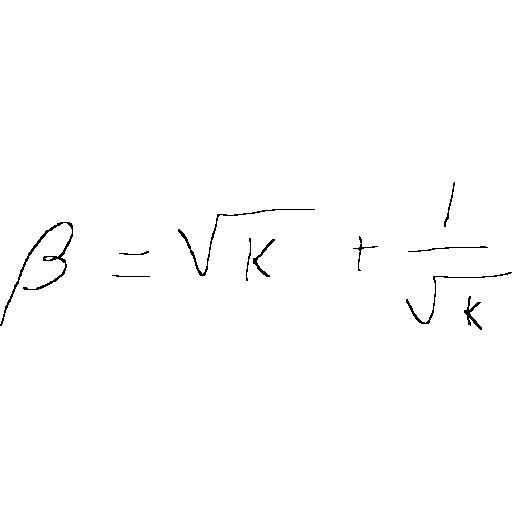 β = √k + 1/√k